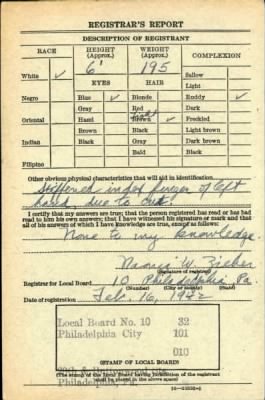 REGISTRAR'S REPORT
DESCRIPTION OF REGISTRANT
RACE HEIGHT (Approx.) WEIGHT (Approx.) COMPLEXION
6' 195
White ✓ Sallow
EYES HAIR Light
Negro Blue ✓ Blonde Ruddy ✓
Gray Red Dark
Oriental Hazel Brown ✓ Freckled
Brown Black Light brown
Indian Black Gray Dark brown
Bald Black
Filipino
Other obvious physical characteristics that will aid in identification
Stiffened index finger of left
hand, due to
I certify that my answers are true; that the person registered has read or has had read to him his own answers; that I have witnessed his signature or mark and that all of his answers of which I have knowledge are true, except as follows:
None to my knowledge.
W.
(Signature of registrar)
Registrar for Local Board 10 Philadelphia Pa
(Number) (City or County) (State)
Date of registration Feb. 16, 1942
Local Board No. 10 32
Philadelphia City 101
010
Philadelphia, Pa.
(STAMP OF LOCAL BOARD)
(The stamp of the Local Board having jurisdiction of the registrant shall be placed in the above space)